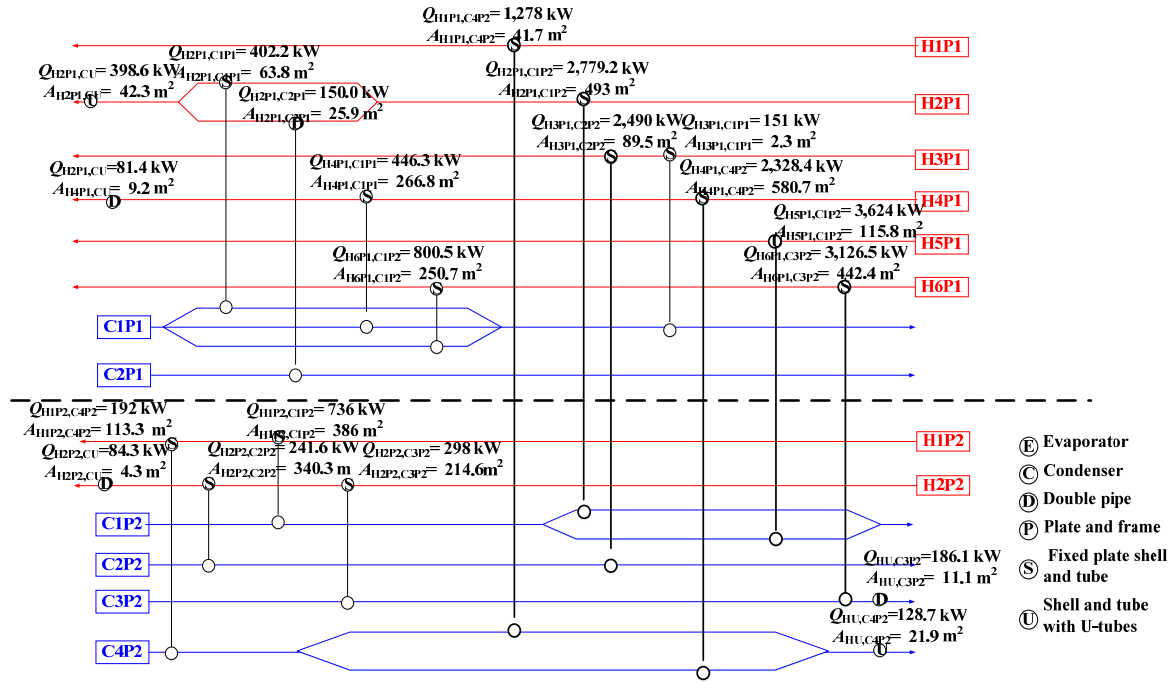 QH1P1,C4P2= 1,278 kW
AH1P1,C4P2= 41.7 m2
H1P1
QH2P1,C1P1= 402.2 kW
AH2P1,C1P1= 63.8 m2
QH2P1,CU= 398.6 kW
AH2P1,CU= 42.3 m2
U
S
QH2P1,C2P1= 150.0 kW
AH2P1,C2P1= 25.9 m2
D
QH2P1,C1P2= 2,779.2 kW
AH2P1,C1P2= 493 m2
S
H2P1
QH3P1,C2P2= 2,490 kW
AH3P1,C2P2= 89.5 m2
S
QH3P1,C1P1= 151 kW
AH3P1,C1P1= 2.3 m2
S
H3P1
QH2P1,CU=81.4 kW
AH4P1,CU= 9.2 m2
D
QH4P1,C1P1= 446.3 kW
AH4P1,C1P1= 266.8 m2
S
QH4P1,C4P2= 2,328.4 kW
AH4P1,C4P2= 580.7 m2
S
H4P1
QH5P1,C1P2= 3,624 kW
AH5P1,C1P2= 115.8 m2
U
H5P1
QH6P1,C1P2= 800.5 kW
AH6P1,C1P2= 250.7 m2
S
QH6P1,C3P2= 3,126.5 kW
AH6P1,C3P2= 442.4 m2
S
H6P1
C1P1
C2P1
QH1P2,C4P2= 192 kW
AH1P2,C4P2= 113.3 m2
S
QH1P2,C1P2= 736 kW
AH1P2,C1P2= 386 m2
S
H1P2
QH2P2,CU= 84.3 kW
AH2P2,CU= 4.3 m2
D
QH2P2,C2P2= 241.6 kW
AH2P2,C2P2= 340.3 m
S
QH2P2,C3P2= 298 kW
AH2P2,C3P2= 214.6m2
S
H2P2
C1P2
C2P2
QHU,C3P2= 186.1 kW
AHU,C3P2= 11.1 m2
D
C3P2
QHU,C4P2=128.7 kW
AHU,C4P2= 21.9 m2
U
C4P2
E Evaporator
C Condenser
D Double pipe
P Plate and frame
S Fixed plate shell
and tube
U Shell and tube
with U-tubes